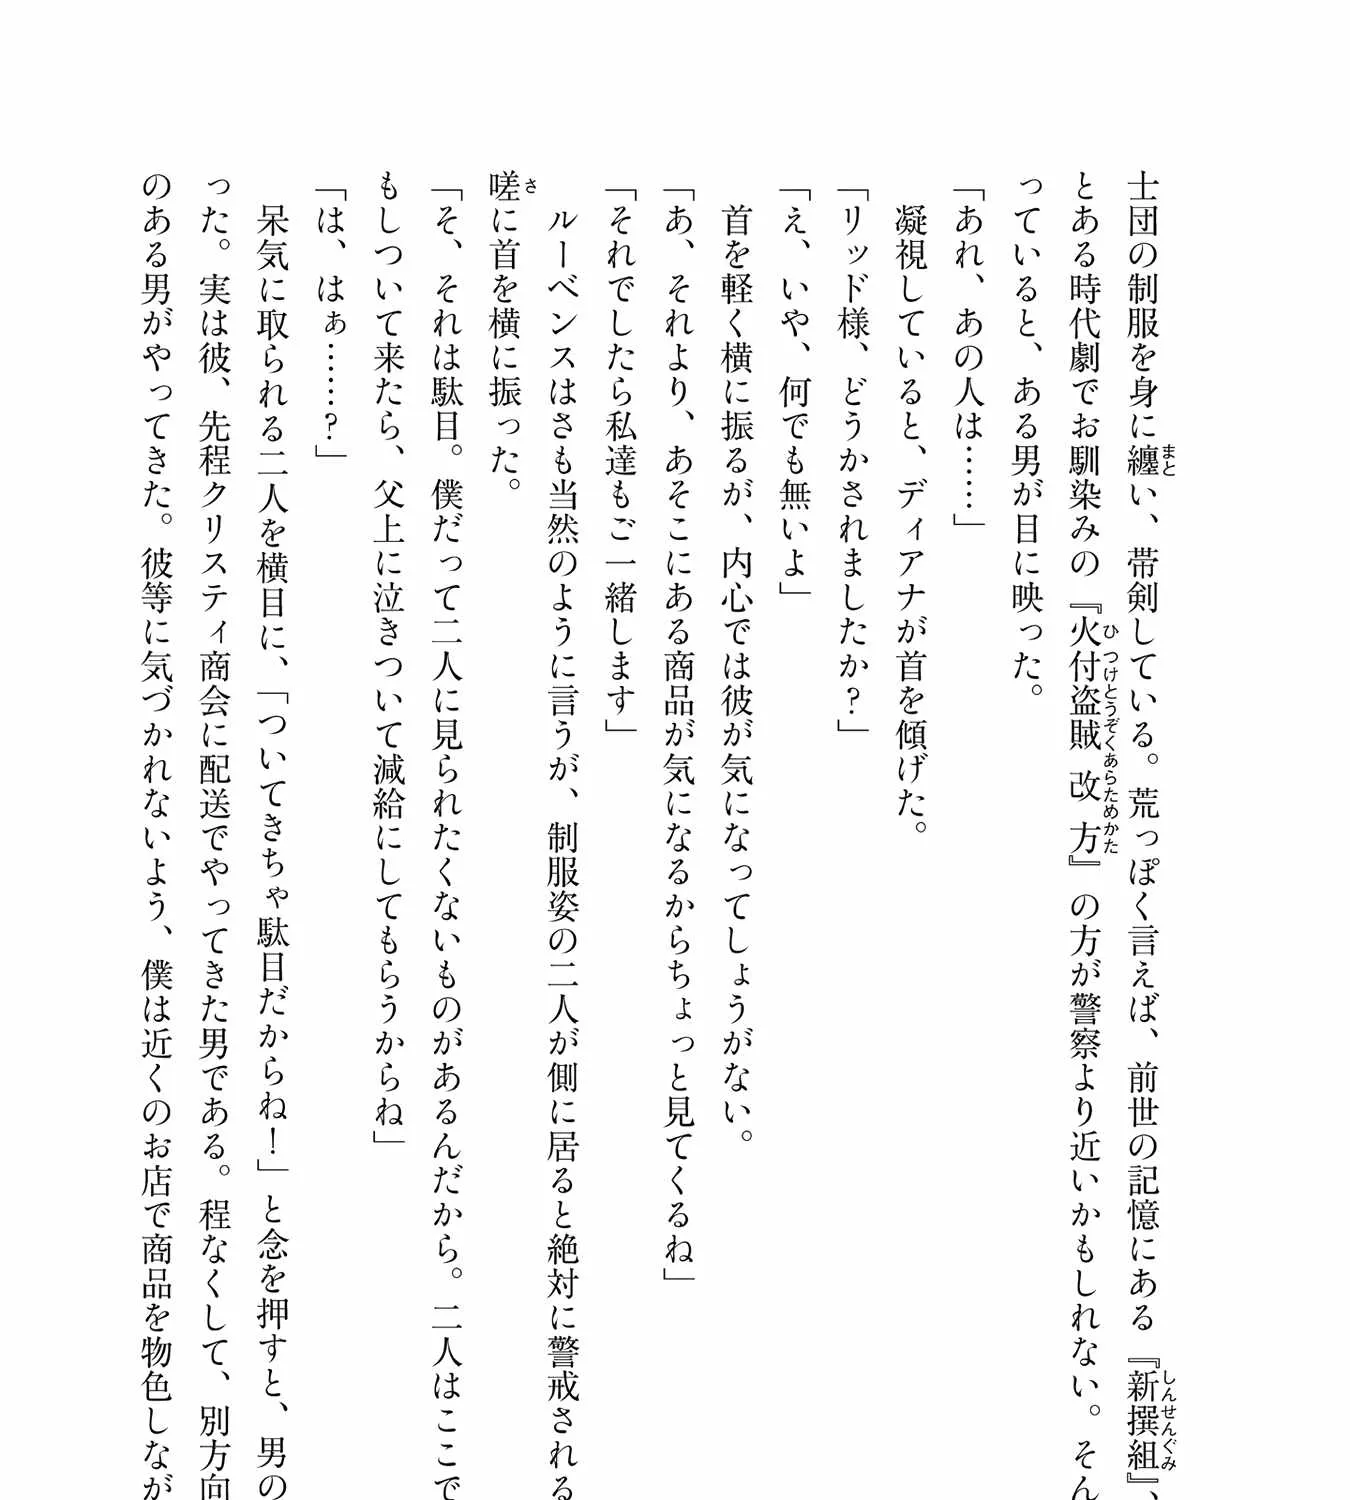 士団の制服を身に纏い、帯剣している。荒っぽく言えば、前世の記憶にある『新撰組』、
とある時代劇でお馴染みの『火付盗賊改方』の方が警察より近いかもしれない。そん
っていると、ある男が目に映った。
「あれ、あの人は……」
凝視していると、ディアナが首を傾げた。
「リッド様、どうかされましたか？」
「え、いや、何でも無いよ」
首を軽く横に振るが、内心では彼が気になってしょうがない。
「あ、それより、あそこにある商品が気になるからちょっと見てくるね」
「それでしたら私達もご一緒します」
ルーベンスはさも当然のように言うが、制服姿の二人が側に居ると絶対に警戒される
嗟に首を横に振った。
「そ、それは駄目。僕だって二人に見られたくないものがあるんだから。二人はここで
もしついて来たら、父上に泣きついて減給にしてもらうからね」
「は、はぁ……？」
呆気に取られる二人を横目に、「ついてきちゃ駄目だからね！」と念を押すと、男の
った。実は彼、先程クリスティ商会に配送でやってきた男である。程なくして、別方向
のある男がやってきた。彼等に気づかれないよう、僕は近くのお店で商品を物色しなが